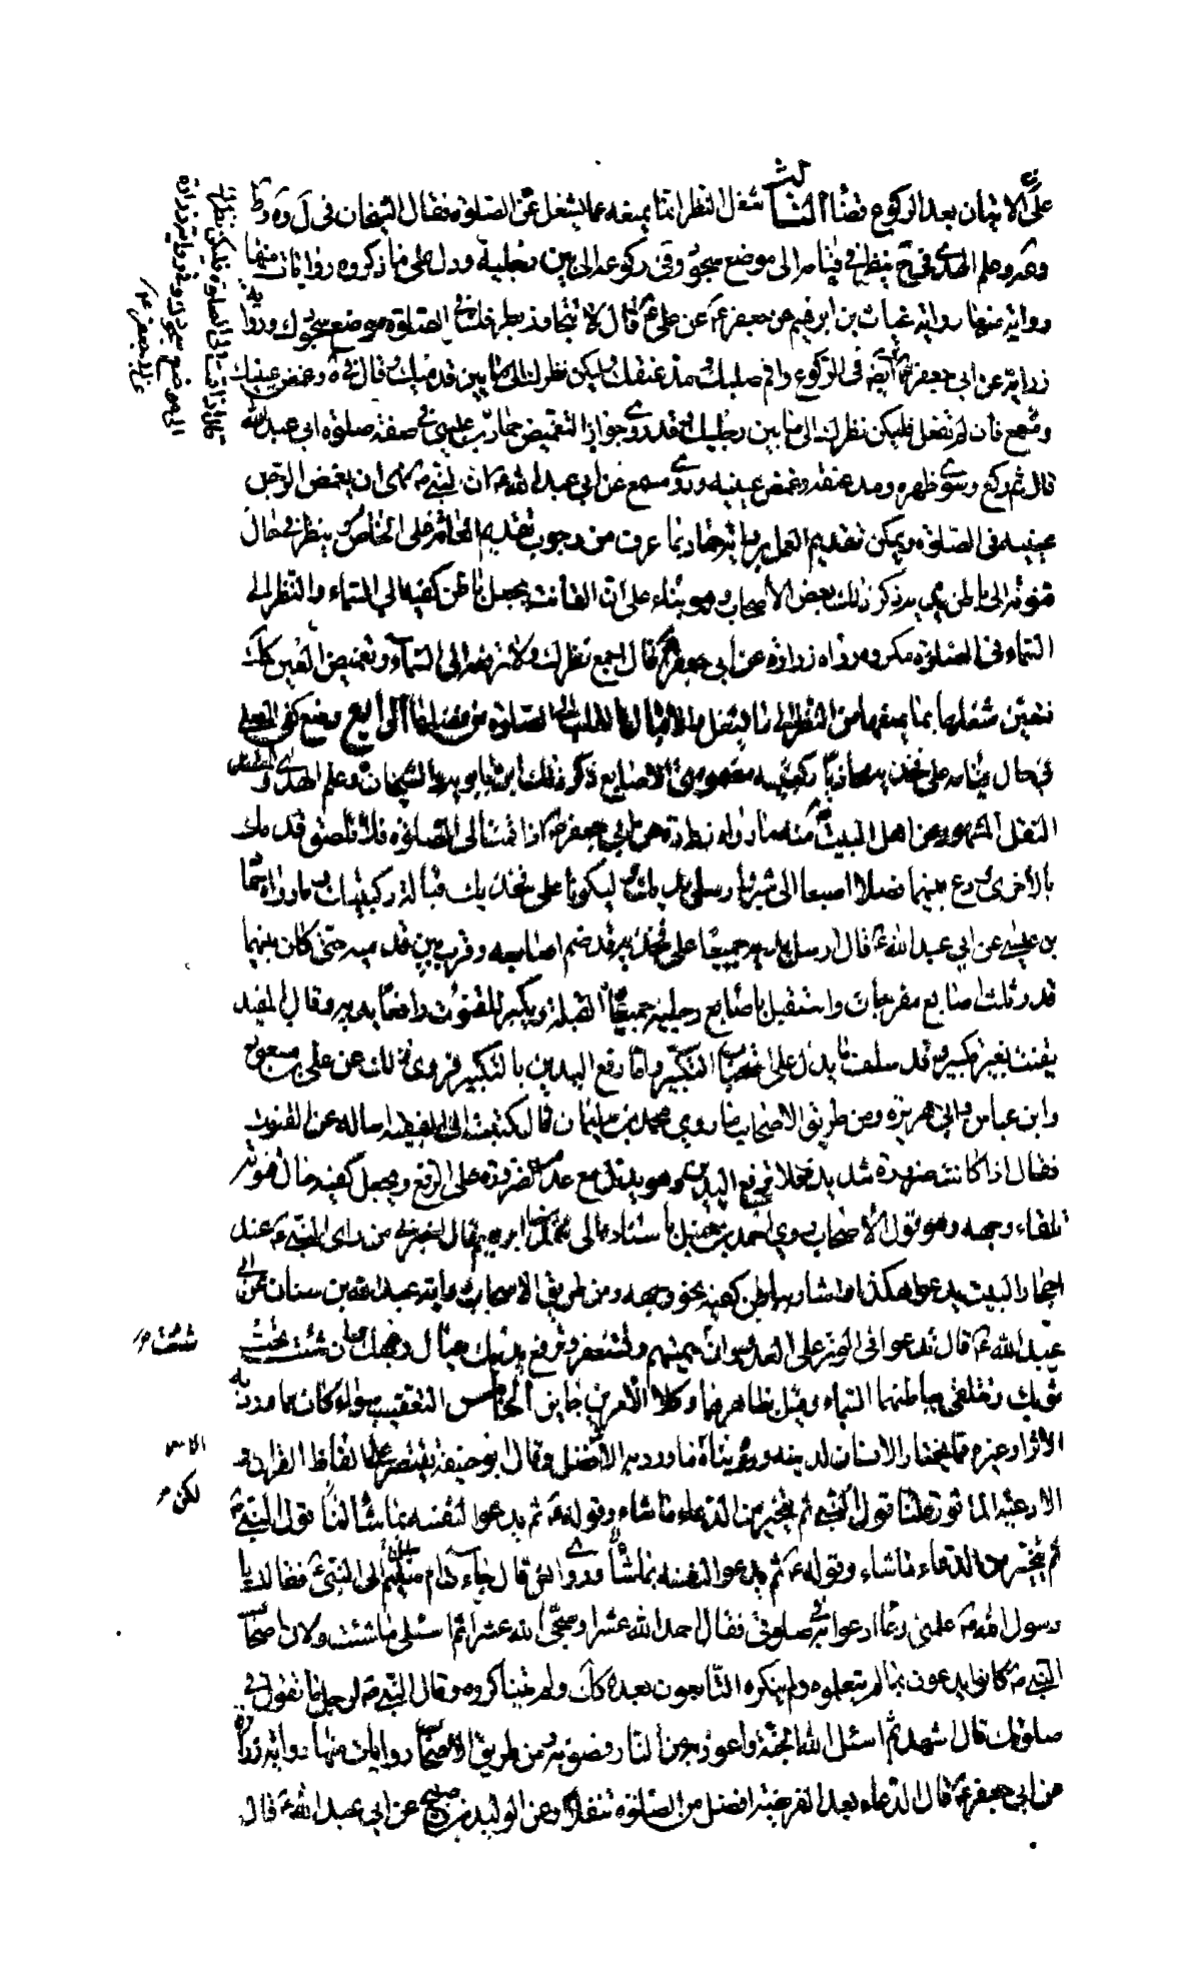 على الاتيان بعد الركوع قضاء الثالث شغل النظر اتما يمنعه عما يشغل عن الصلوة فقال الشيخان في ل وه وط
وعلم الهدى في ينظر في قيامه الى موضع سجوده وفي ركوعه الى بين رجليه ودل على ما ذكروه روايات منها
رواية منها رواية غياث بن ابرهيم عن جعفر ع عن علي ع قال لا تتجاوز بطرفك في الصلوة موضع سجودك ورواية
زرارة عن ابي جعفر ع في الركوع واقم صلبك ومد عنقك وليكن نظرك الى ما بين قدميك قال في وغمض عينيك
فان لم تفعل فليكن نظرك الى ما بين رجليك وروى جواز التغميض حماد بن عيسى في صفة صلوة ابي عبد الله
قال ثم ركع وسوى ظهره ومد عنقه وغمض عينيه وروى مسمع عن ابي عبد الله ع ان النبي ص نهى ان يغمض الرجل
عينيه في الصلوة ويمكن تقديم العمل برواية حماد لما عرف من وجوب تقديم الخاص على ينظر في حال
قنوته الى باطن يديه ذكر ذلك بعض الاصحاب وهو بناء على ان القانت يجعل باطن كفيه الى السماء والنظر الى
السماء في الصلوة مكروه رواه زرارة عن ابي جعفر ع قال اجمع نظرك ولا ترفعه الى السماء وتغميض العين كك
فتعين شغلها بما يمنعها من النظر الى ما يشغل الرابع وضع كفى المصلى
في حال قيامه على فخذيه محاذيا ركبتيه مضمومتى الاصابع ذكر ذلك ابن بابويه والشيخان وعلم الهدى
النقل المشهور عن اهل البيت ع منه ما رواه زرارة عن ابي جعفر ع اذا قمت الى الصلوة فلا تلصق قدمك
بالاخرى ودع بينهما فصلا اصبعا الى شبر وارسل يديك وليكونا على فخذيك قبالة ركبتيك وما رواه حماد
بن عيسى عن ابي عبد الله ع قال ارسل يديه جميعا على فخذيه قد ضم اصابعه وقرب بين قدميه حتى كان بينهما
قدر ثلث اصابع مفرجات واستقبل باصابع رجليه جميعا القبلة ويكبر للقنوت رافعا يديه وقال المفيد
يقنت بغير تكبير وقد سلف ما يدل على استحباب التكبير واما رفع اليدين بالتكبير فروى ذلك عن علي وابن مسعود
وابن عباس وابي هريرة ومن طريق الاصحاب ما روى محمد بن سليمان قال كتبت الى الفقيه اساله عن القنوت
فقال اذا كانت ضرورة شديدة فلا ترفع اليدين وهو يدل مع عدم الضرورة على الرفع ويجعل كفيه حال قنوته
تلقاء وجهه وهو قول الاصحاب وروى احمد بن حنبل باسناده الى محمد بن ابرهيم قال اخبرني من راى النبي ص عند
احجار البيت يدعو هكذا واشار بباطن كفيه نحو وجهه ومن طريق الاصحاب رواية عبد الله بن سنان عن ابي
عبد الله ع قال تدعوا في الوتر على العدو وان شئت سميتهم وتستغفر وترفع يديك حيال وجهك وان شئت تحت
ثوبك وتتلقى بباطنهما السماء وقيل بظاهرهما وكلا الامرين جايز الخامس التعقيب سواء كان بما وردت به
الاثار او غيره مما يختار الانسان لدينه ودنياه وما ورد به الافضل وقال ابو حنيفة يقتصر على الفاظ القران و
الادعية الماثورة لنا قول النبي ص ثم يتخير من الدعاء ما شاء وقوله ع ثم يدعوا لنفسه بما شاء لنا قول النبي ص
ثم يتخير من الدعاء ما شاء وقوله ع ثم يدعو لنفسه بما شاء وروى انس قال جاءت ام سليم الى النبي ص فقالت يا
رسول الله ص علمني دعاء ادعوا به في صلوتي فقال احمد الله عشرا وسبحي الله عشرا ثم اسئلي ما شئت ولان اصحاب
النبي ص كانوا يدعون بما لم يتعلموه ولم ينكره التابعون بعده كك ولم يتناكروه وقال النبي ص لرجل ما تقول في
صلوتك قال اتشهد ثم اسئل الله الجنة واعوذ به من النار فصوبه ومن طريق الاصحاب روايات منها رواية زرارة
عن ابي جعفر ع قال الدعاء بعد الفريضة افضل من الصلوة تنفلا وعن الوليد بن صبيح عن ابي عبد الله ع قال
شئت
لكن